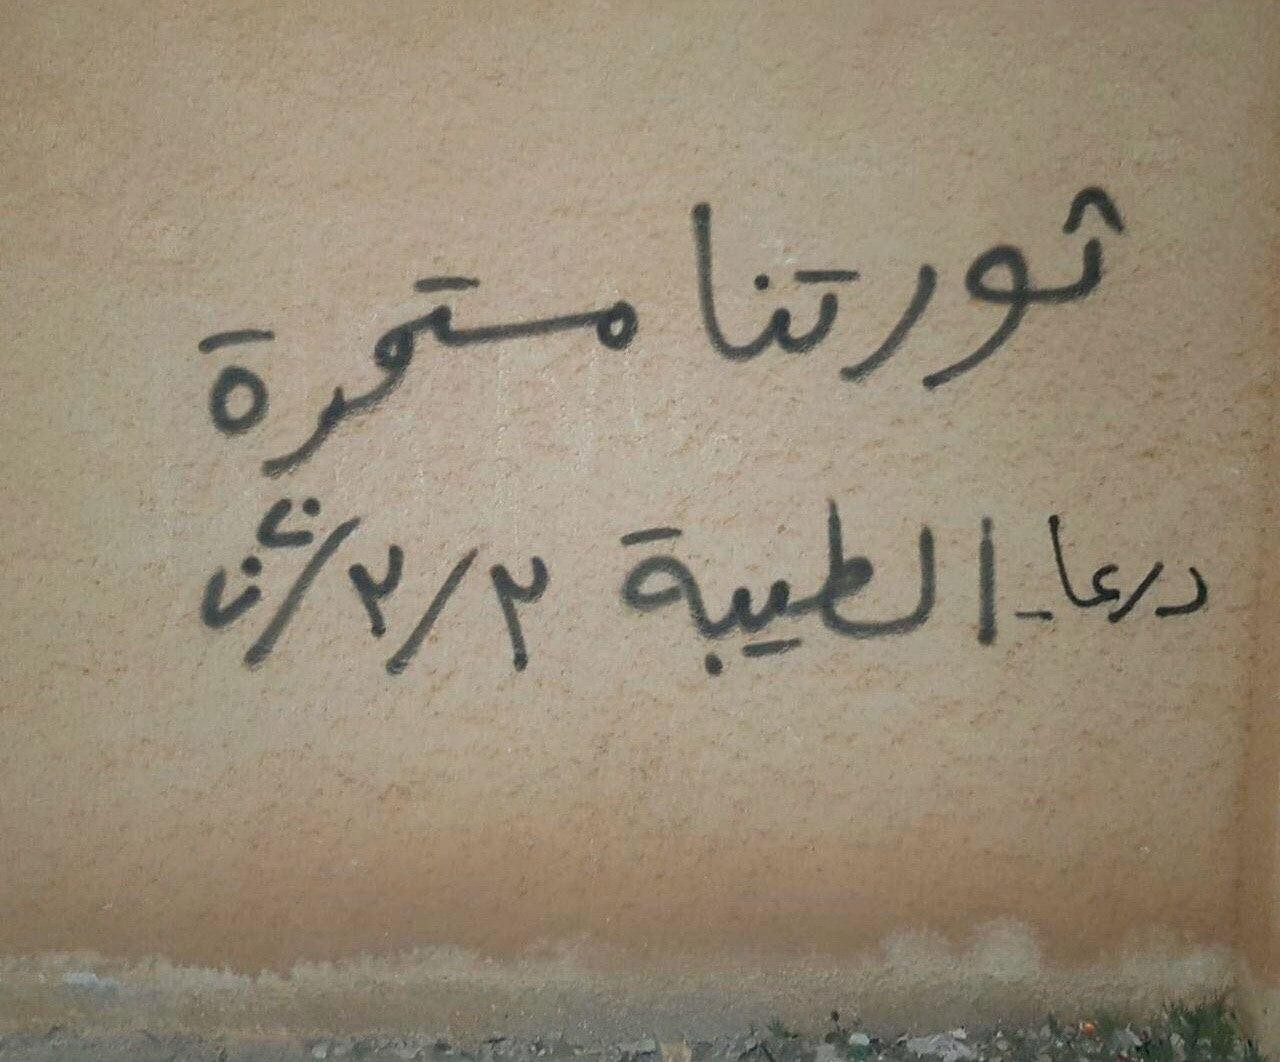 ثورتنا مستمرة
درعا - الطيبة ٣/٢/